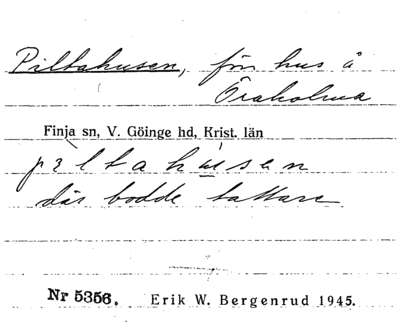 Piltahusen, för hus å
Öraholma
Finja sn, V. Göinge hd, Krist. län
piltahusen
där bodde tattare
Nr 5356. Erik W. Bergenrud 1945.